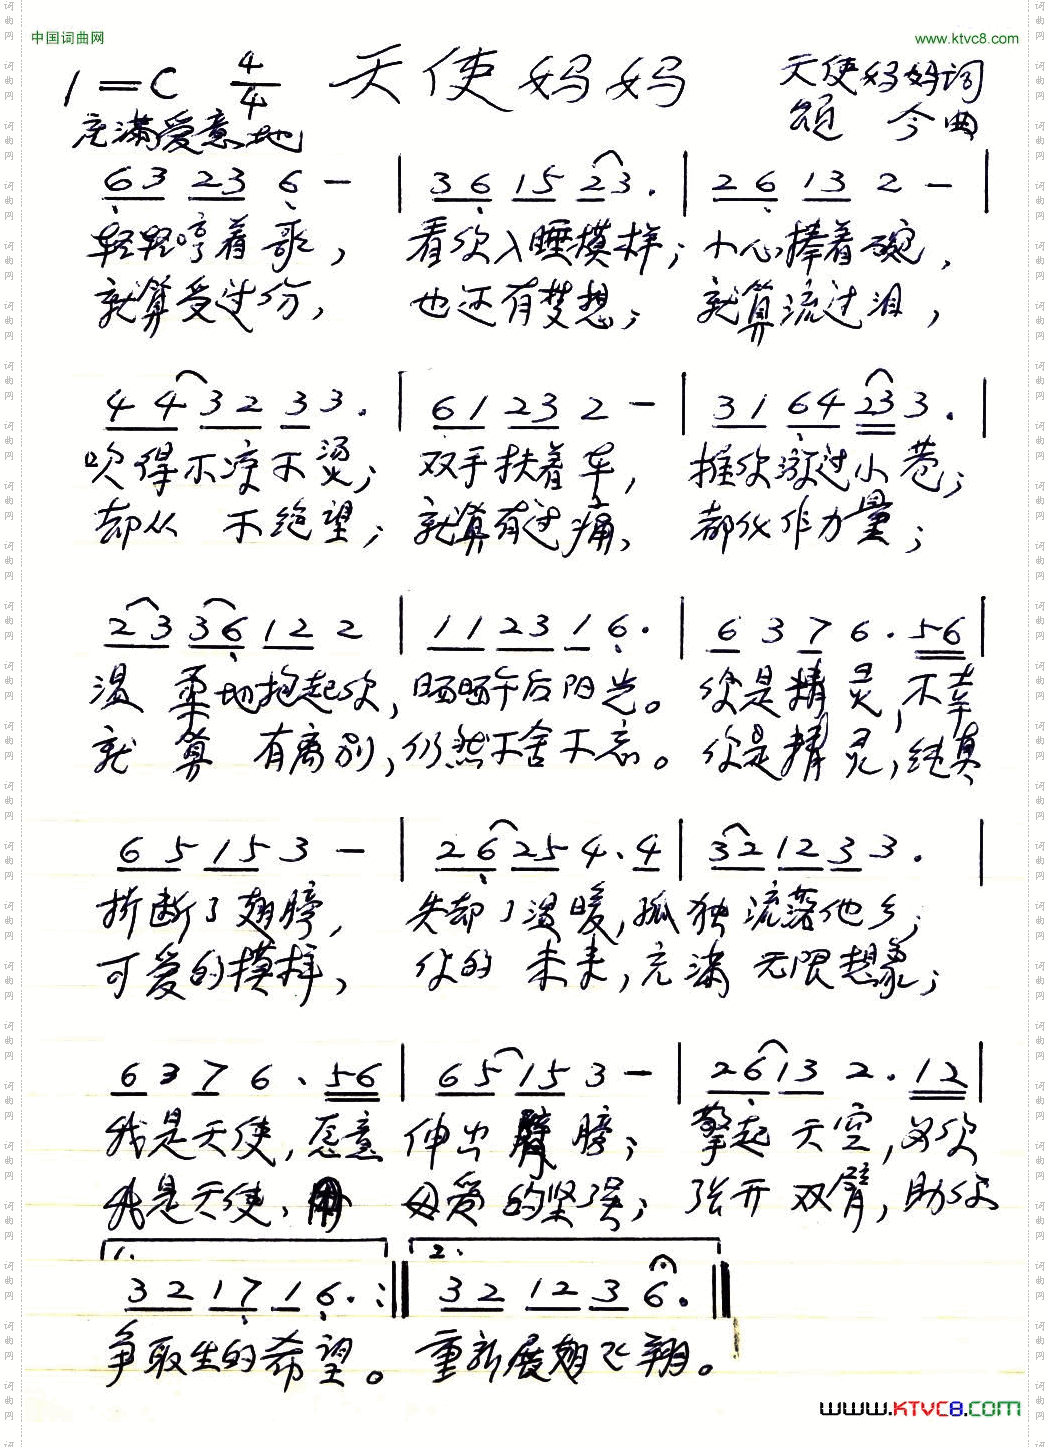 中国词曲网
www.ktvc8.com
1=C 4/4 天使妈妈 天使妈妈词
今曲
充满爱意地
63 23 6 - | 36 15 23. | 26 13 2 - |
轻轻哼着歌, 看你入睡模样; 小心捧着碗,
就算受过伤, 也还有梦想; 就算流过泪,
44 32 33. | 61 23 2 - | 31 64 23 3. |
吹得不凉不烫; 双手扶着车, 推你渡过小巷;
却从 不绝望; 就算有过痛, 都化作力量;
23 36 12 2 | 11 23 1 6. | 6 3 7 6. 56 |
温 柔地抱起你, 晒晒午后阳光。 你是精灵, 不幸
就 算 有离别, 仍然不舍不忘。 你是精灵, 纯真
65 15 3 - | 26 25 4. 4 | 32 12 3 3. |
折断了翅膀, 失却了温暖, 孤独流落他乡;
可爱的模样, 你的 未来, 充满 无限想象;
6 3 7 6. 56 | 65 15 3 - | 26 13 2. 12 |
我是天使, 愿意 伸出臂膀; 擎起 天空, 为你
我是天使, 用 母爱的坚强; 张开 双臂, 助你
1. 2.
32 17 1 6. :‖ 32 12 3 6. ‖
争取生的希望。 重新展翅飞翔。
www.KTVC8.COM